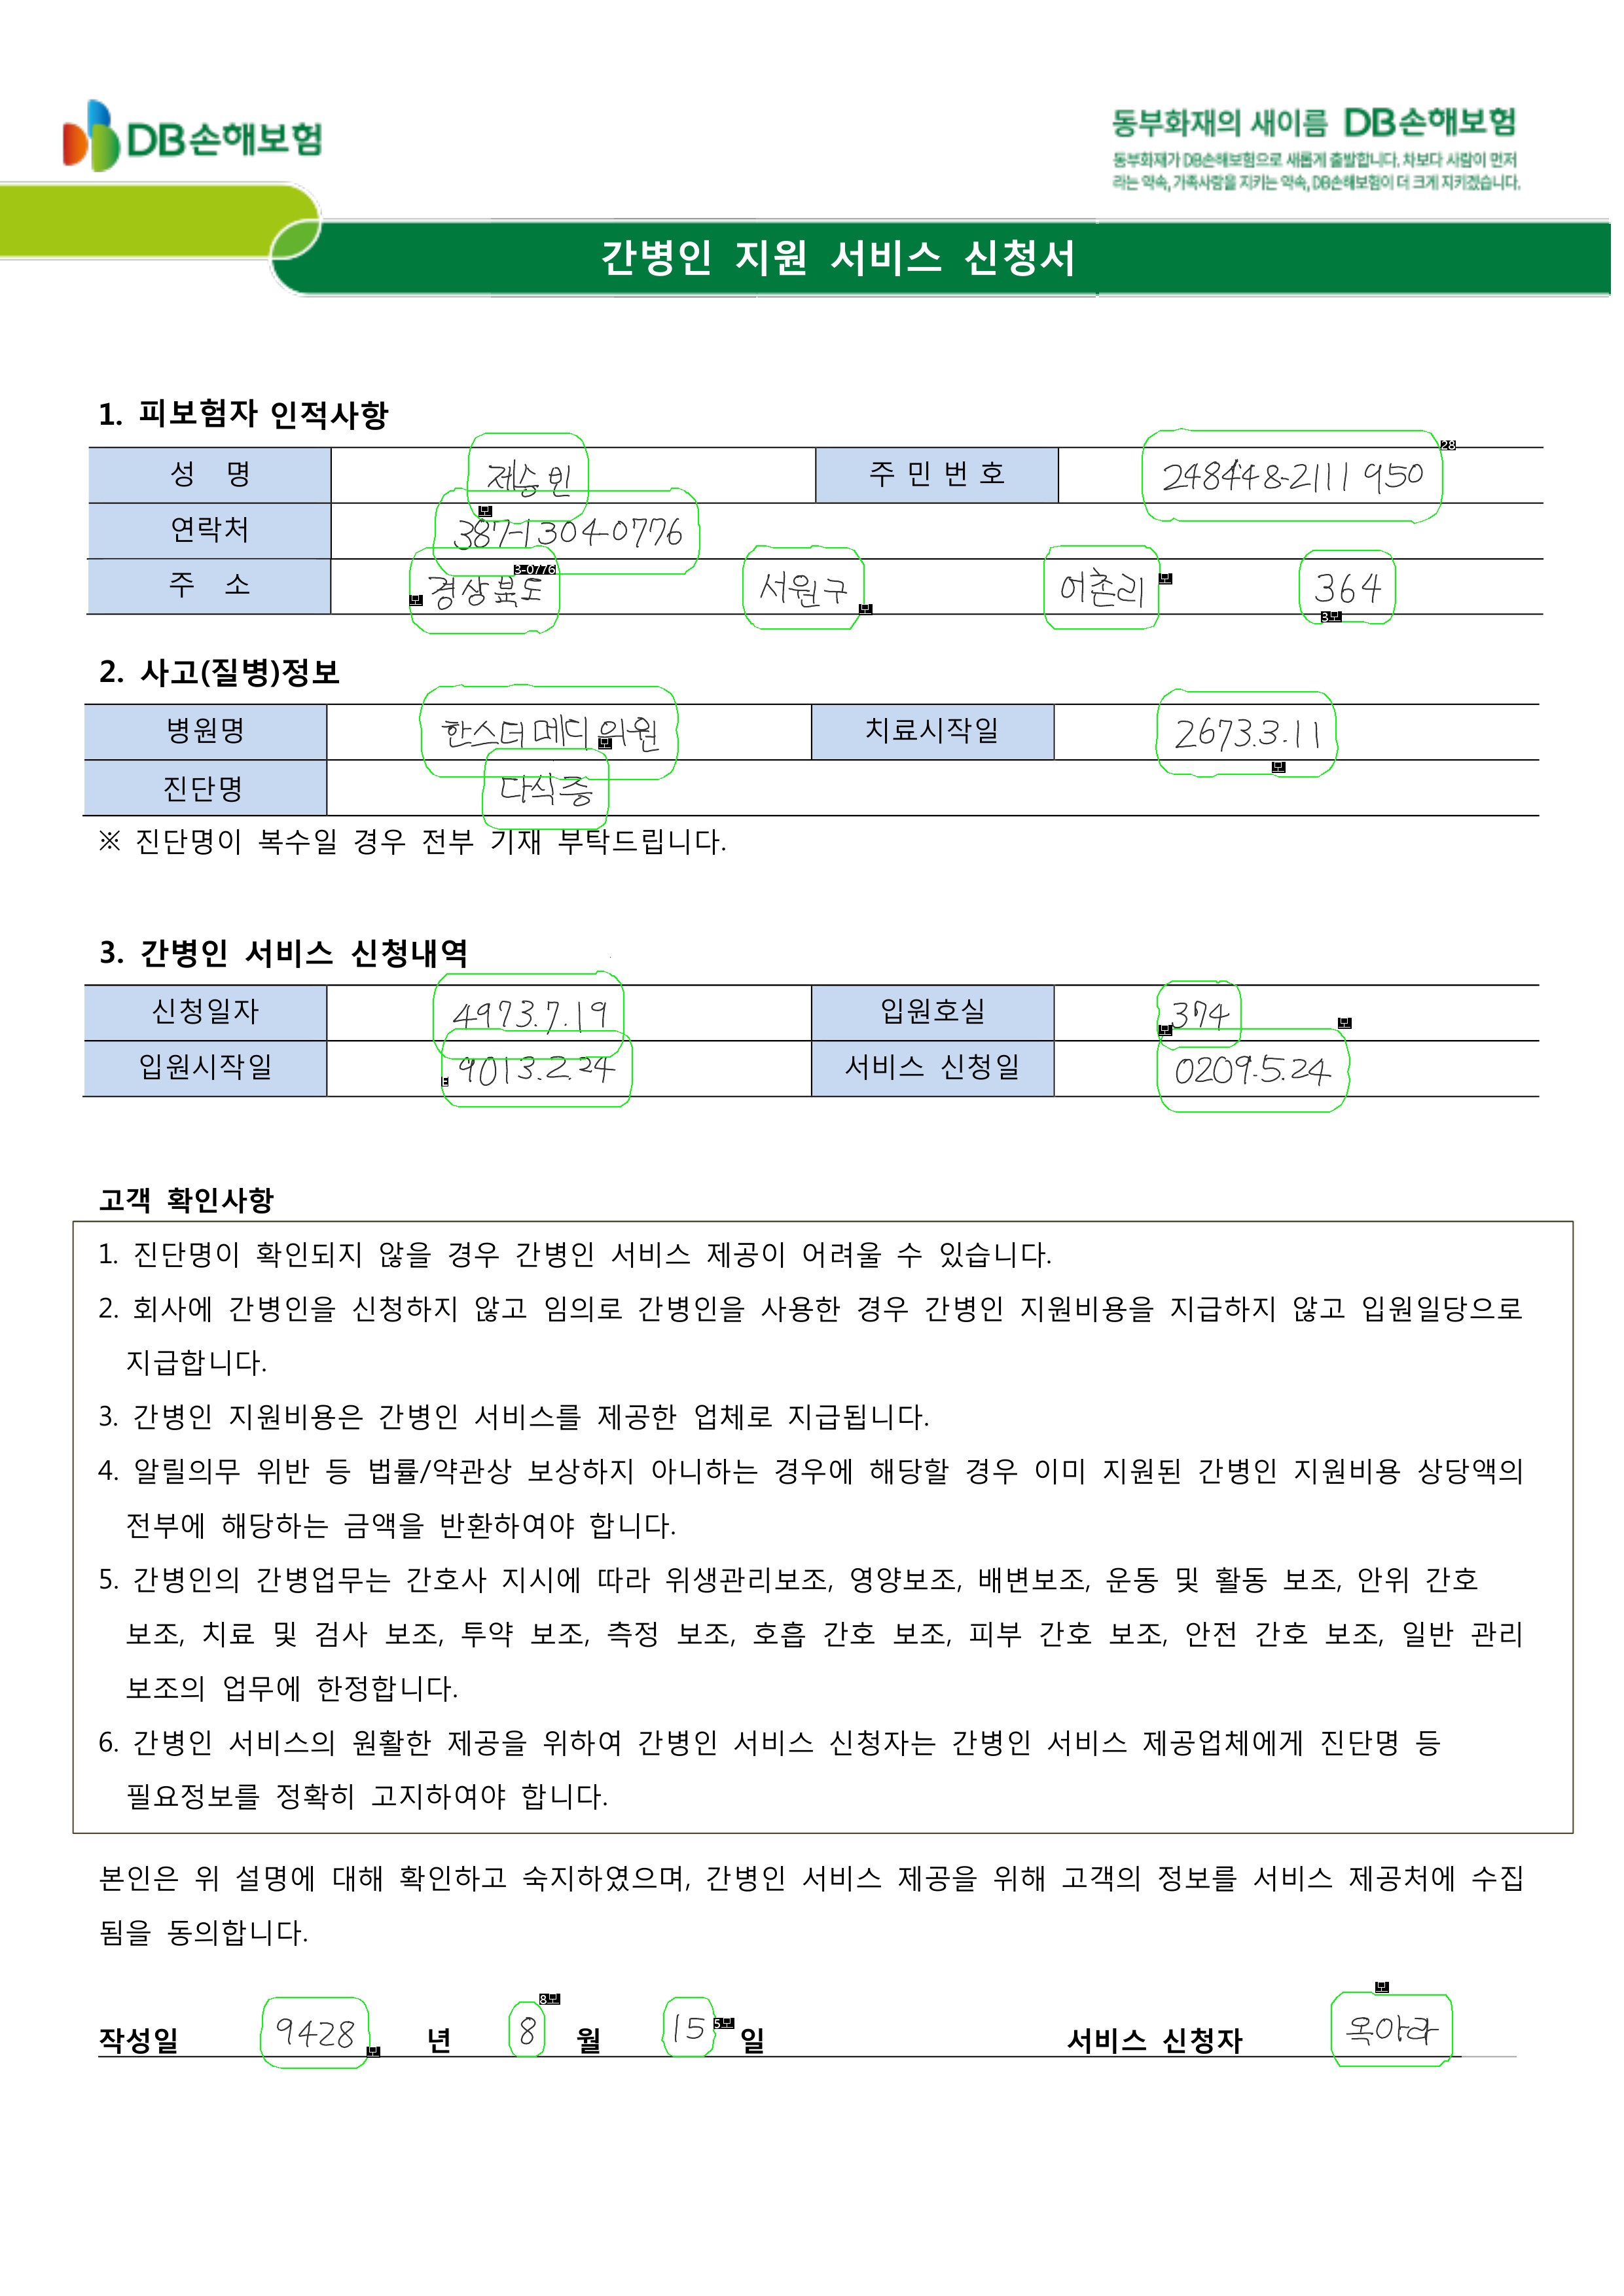 DB손해보험
동부화재의 새이름 DB손해보험
동부화재가 DB손해보험으로 새롭게 출발합니다. 차보다 사람이 먼저
라는 약속, 가족사랑을 지키는 약속, DB손해보험이 더 크게 지키겠습니다.
간병인 지원 서비스 신청서
1. 피보험자 인적사항
성 명 제승빈 주 민 번 호 248448-2111950
연락처 387-1304-0776
주 소 경상북도 서원구 어촌리 364
2. 사고(질병)정보
병원명 한스터메디의원 치료시작일 2673.3.11
진단명 다식증
※ 진단명이 복수일 경우 전부 기재 부탁드립니다.
3. 간병인 서비스 신청내역
신청일자 4973.7.19 입원호실 374
입원시작일 9013.2.24 서비스 신청일 0209.5.24
고객 확인사항
1. 진단명이 확인되지 않을 경우 간병인 서비스 제공이 어려울 수 있습니다.
2. 회사에 간병인을 신청하지 않고 임의로 간병인을 사용한 경우 간병인 지원비용을 지급하지 않고 입원일당으로
지급합니다.
3. 간병인 지원비용은 간병인 서비스를 제공한 업체로 지급됩니다.
4. 알릴의무 위반 등 법률/약관상 보상하지 아니하는 경우에 해당할 경우 이미 지원된 간병인 지원비용 상당액의
전부에 해당하는 금액을 반환하여야 합니다.
5. 간병인의 간병업무는 간호사 지시에 따라 위생관리보조, 영양보조, 배변보조, 운동 및 활동 보조, 안위 간호
보조, 치료 및 검사 보조, 투약 보조, 측정 보조, 호흡 간호 보조, 피부 간호 보조, 안전 간호 보조, 일반 관리
보조의 업무에 한정합니다.
6. 간병인 서비스의 원활한 제공을 위하여 간병인 서비스 신청자는 간병인 서비스 제공업체에게 진단명 등
필요정보를 정확히 고지하여야 합니다.
본인은 위 설명에 대해 확인하고 숙지하였으며, 간병인 서비스 제공을 위해 고객의 정보를 서비스 제공처에 수집
됨을 동의합니다.
작성일 9428 년 8 월 15 일 서비스 신청자 옥아라